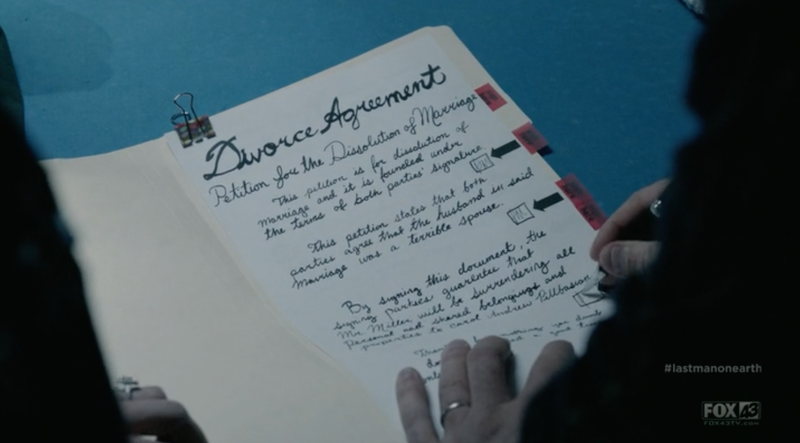 Divorce Agreement
Petition for the Dissolution of Marriage
This petition is for dissolution of
marriage and it is founded under
the terms of both parties' signature.
This petition states that both
parties agree that the husband in said
marriage was a terrible spouse.
By signing this document, the
signing parties guarentee that
Mr. Miller will be surrendering all
personal and shared belongings and
properties to carol Andrew Pillbasian.
#lastmanonearth
FOX 43
FOX43TV.com